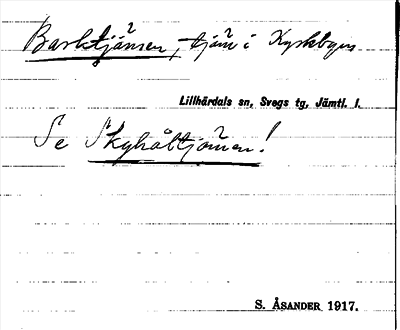 Barktjärnen, tjärn i Kyrkbyn
Lillhärdals sn, Svegs tg, Jämtl. l.
Se Skyhåltjärnen!
S. ÅSANDER 1917.